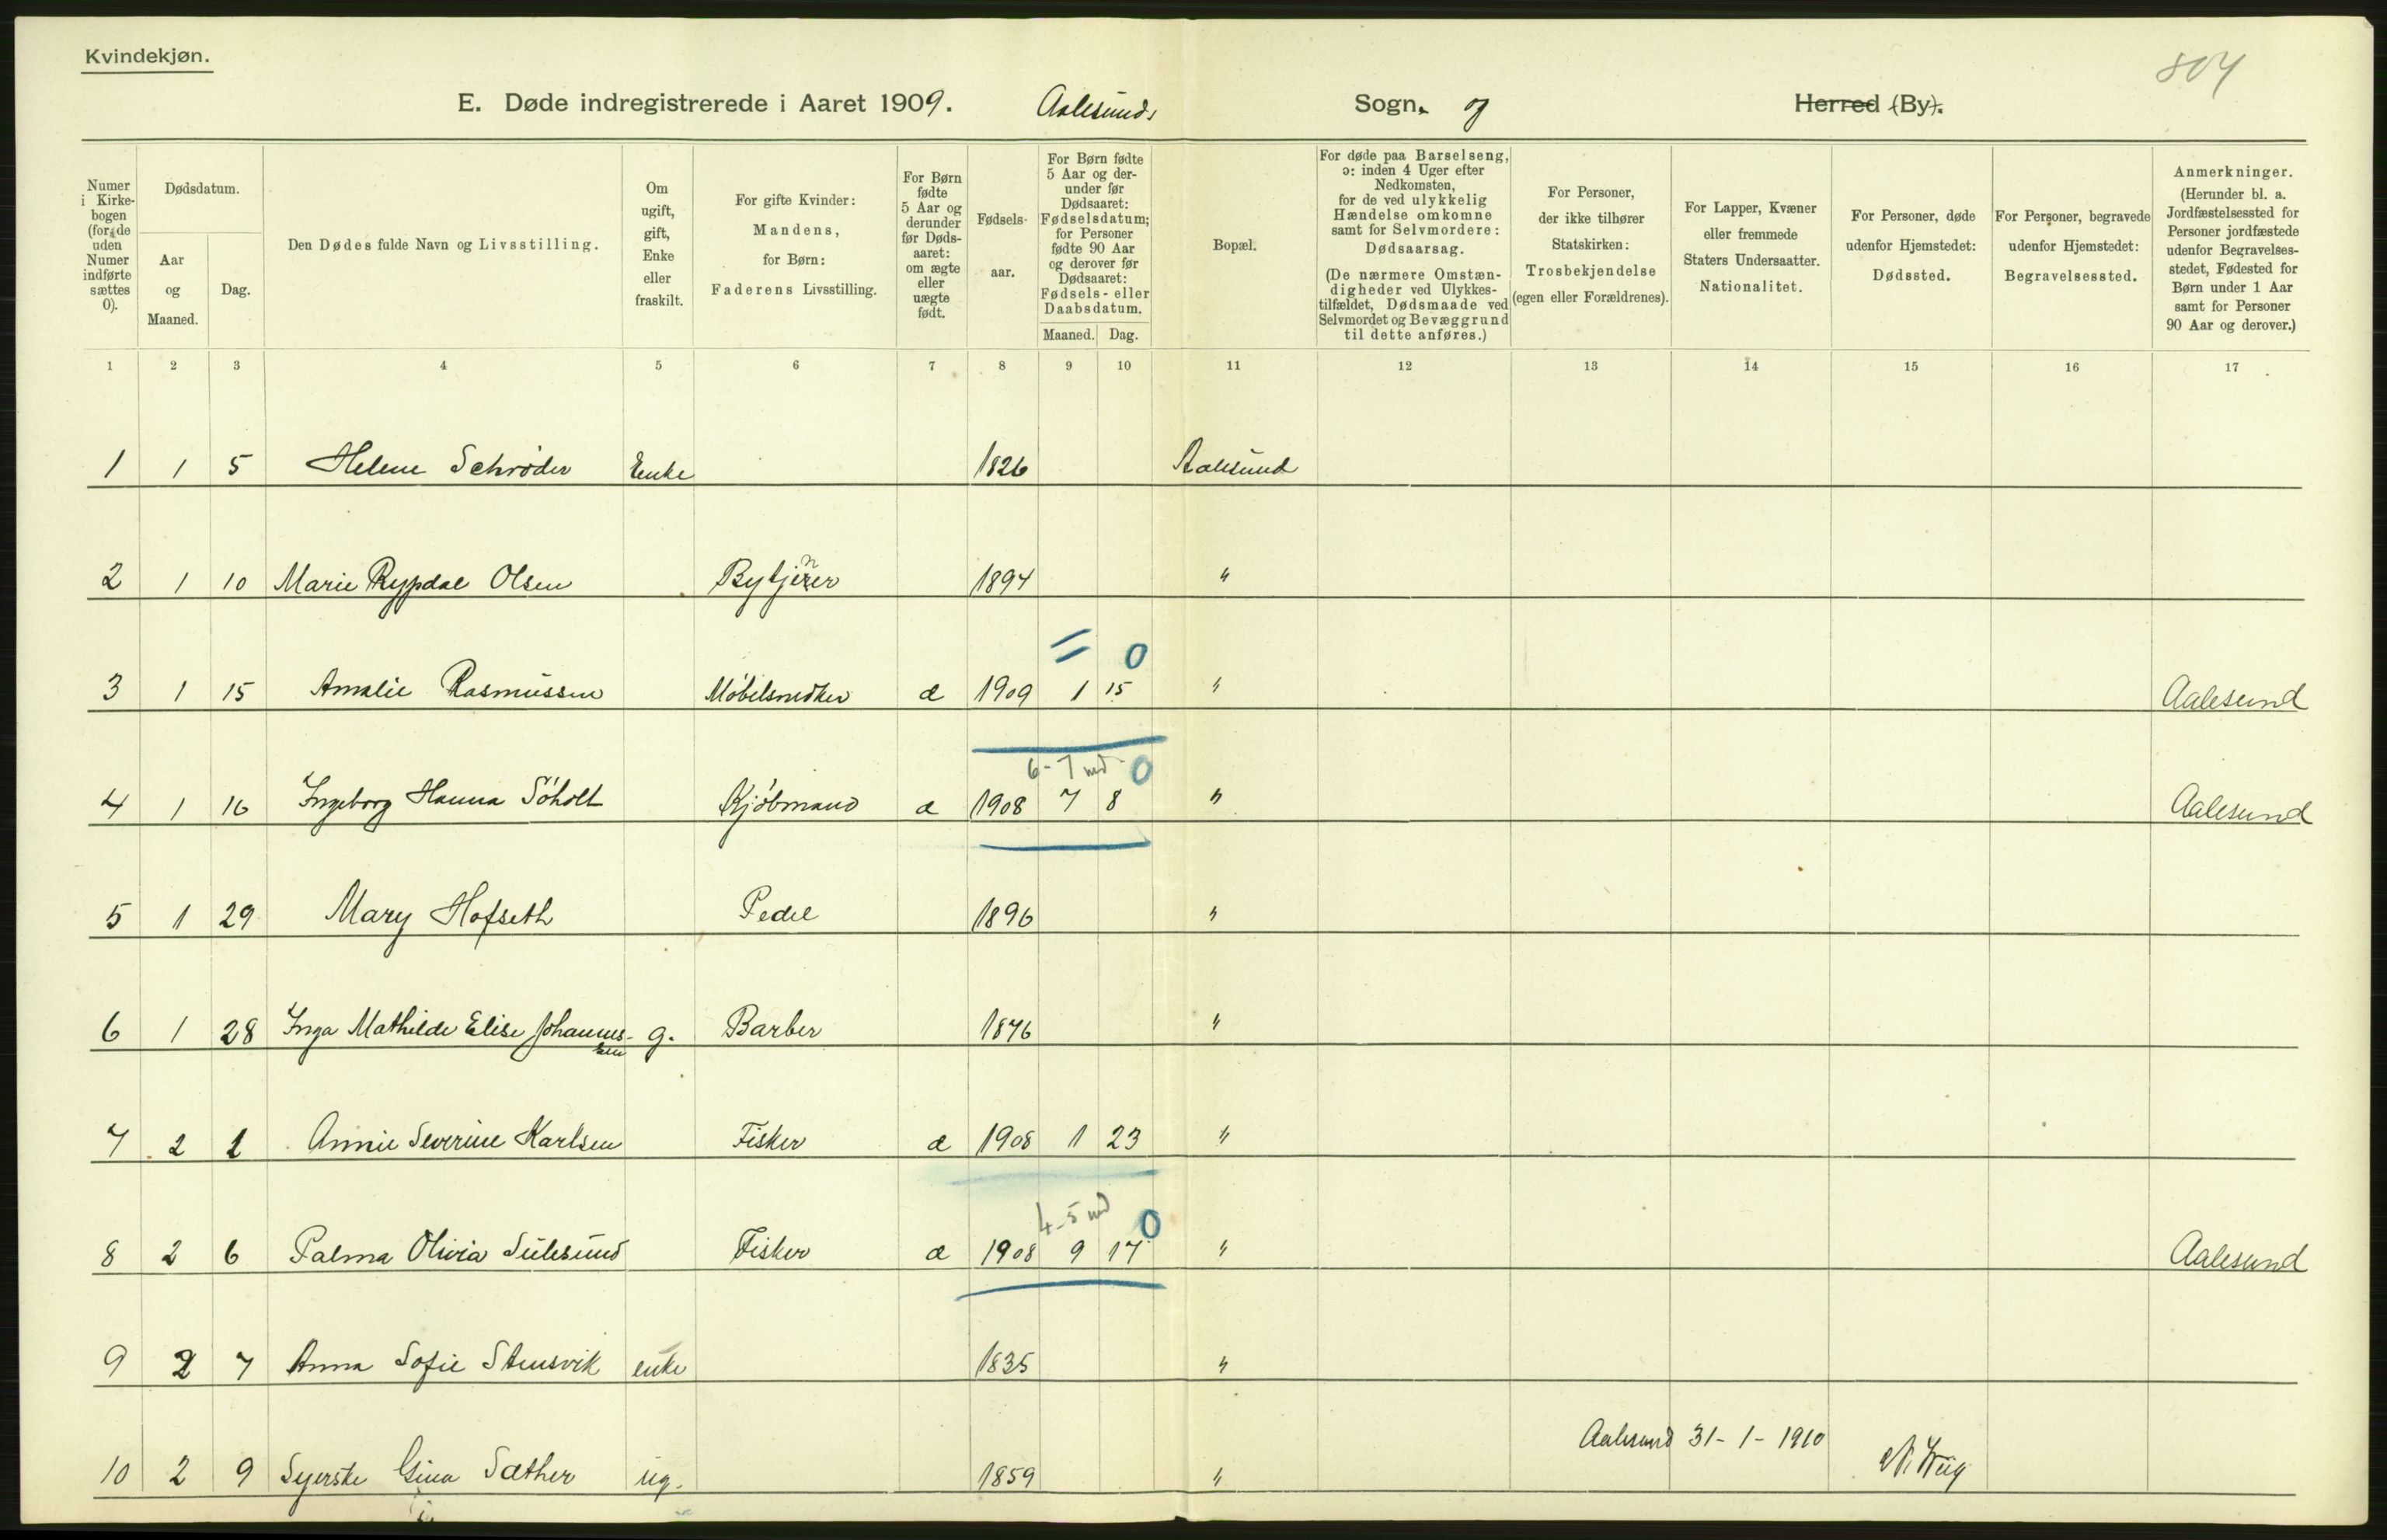 Kvindekjøn.
804
E. Døde indregistrerede i Aaret 1909. Aalesunds Sogn. og Herred (By).
Numer i Kirkebogen (for de uden Numer indførte sættes 0).
Dødsdatum.
Aar og Maaned.
Dag.
Den Dødes fulde Navn og Livsstilling.
Om ugift, gift, Enke eller fraskilt.
For gifte Kvinder: Mandens, for Børn: Faderens Livsstilling.
For Børn fødte 5 Aar og derunder før Dødsaaret: om ægte eller uægte født.
Fødselsaar.
For Børn fødte 5 Aar og derunder før Dødsaaret: Fødselsdatum; for Personer fødte 90 Aar og derover før Dødsaaret: Fødsels- eller Daabsdatum.
Maaned. Dag.
Bopæl.
For døde paa Barselseng, ɔ: inden 4 Uger efter Nedkomsten, for de ved ulykkelig Hændelse omkomne samt for Selvmordere: Dødsaarsag.
(De nærmere Omstændigheder ved Ulykkestilfældet, Dødsmaade ved Selvmordet og Bevæggrund til dette anføres.)
For Personer, der ikke tilhører Statskirken: Trosbekjendelse (egen eller Forældrenes).
For Lapper, Kvæner eller fremmede Staters Undersaatter. Nationalitet.
For Personer, døde udenfor Hjemstedet: Dødssted.
For Personer, begravede udenfor Hjemstedet: Begravelsessted.
Anmerkninger.
(Herunder bl. a. Jordfæstelsessted for Personer jordfæstede udenfor Begravelsesstedet, Fødested for Børn under 1 Aar samt for Personer 90 Aar og derover.)
1 2 3 4 5 6 7 8 9 10 11 12 13 14 15 16 17
1 1 5 Helene Schrøder Enke 1826 Aalesund
2 1 10 Marie Rypdal Olsen Bytjener 1894 "
= 0
3 1 15 Amalie Rasmussen Møbelsnedker æ 1909 1 15 " Aalesund
6-7 md 0
4 1 16 Ingeborg Hanna Söholt Kjöbmand æ 1908 7 8 " Aalesund
5 1 29 Mary Hofseth Pedel 1896 "
6 1 28 Inga Mathilde Elise Johannes-sen g. Barber 1876 "
7 2 1 Annie Severine Karlsen Fisker æ 1908 1 23 "
4-5 md 0
8 2 6 Palma Olivia Sulesund Fisker æ 1908 9 17 " Aalesund
9 2 7 Anna Sofie Stensvik enke 1835 "
Aalesund 31-1-1910
10 2 9 Syerske Gina Sæther ug. 1859 "